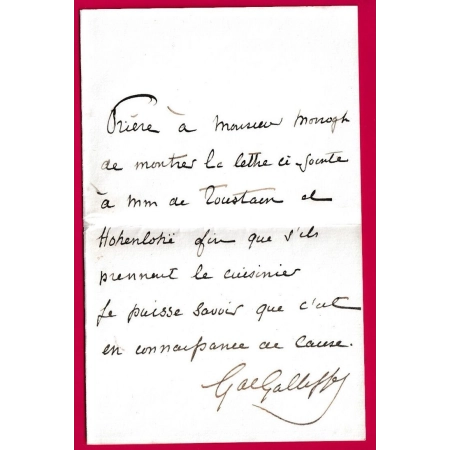 Prière à Monsieur Monogh
de montrer la lettre ci-jointe
à mm de Toustain et
Hohenlohë afin que s'ils
prennent le cuisinier
Je puisse savoir que c'est
en connaissance de cause.
G de Galliffet